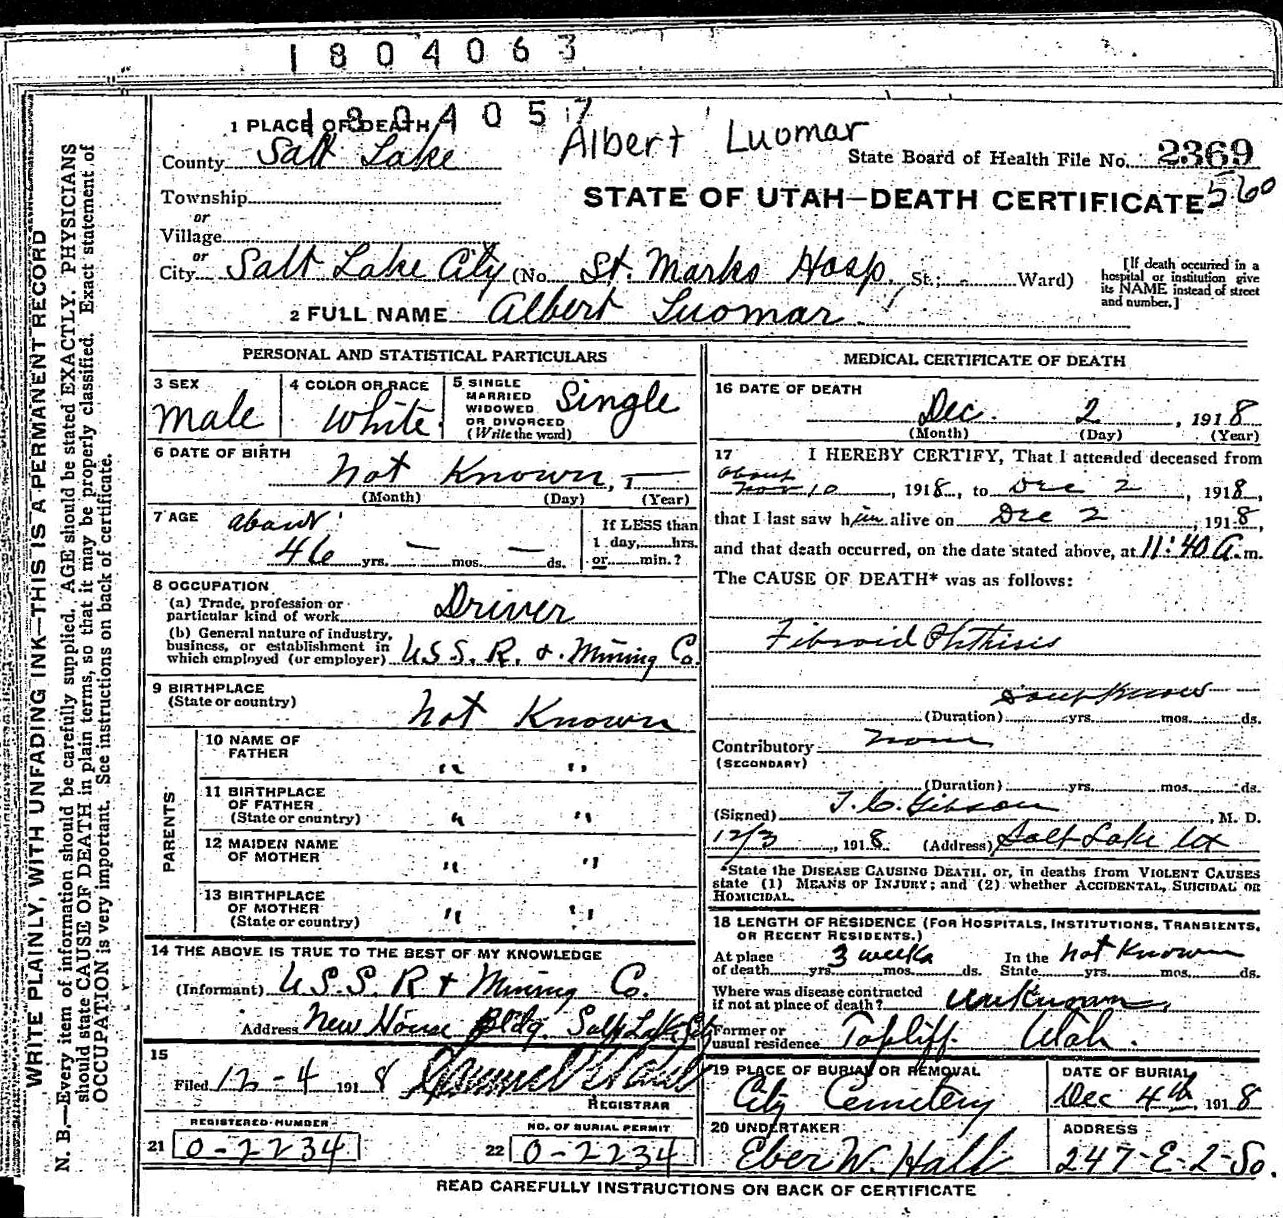 1804063
1804057
Albert Luomar
1 PLACE OF DEATH
County Salt Lake
State Board of Health File No. 2369
560
Township
or
Village
or
STATE OF UTAH—DEATH CERTIFICATE
City Salt Lake City (No. St. Marks Hosp, St.; - Ward)
[If death occurred in a hospital or institution give its NAME instead of street and number.]
2 FULL NAME Albert Luomar.
PERSONAL AND STATISTICAL PARTICULARS
3 SEX Male
4 COLOR OR RACE White.
5 SINGLE MARRIED WIDOWED OR DIVORCED (Write the word) Single
6 DATE OF BIRTH Not Known, —
(Month) (Day) (Year)
7 AGE about 46 yrs. — mos. — ds.
If LESS than 1 day, hrs. or min.?
8 OCCUPATION
(a) Trade, profession or particular kind of work Driver
(b) General nature of industry, business, or establishment in which employed (or employer) U.S.S. R. & Mining Co.
9 BIRTHPLACE
(State or country) Not Known
PARENTS
10 NAME OF FATHER " "
11 BIRTHPLACE OF FATHER (State or country) " "
12 MAIDEN NAME OF MOTHER " "
13 BIRTHPLACE OF MOTHER (State or country) " "
14 THE ABOVE IS TRUE TO THE BEST OF MY KNOWLEDGE
(Informant) U.S.S. R & Mining Co.
Address New House Bldg. Salt Lake City
15
Filed 12-4 1918
REGISTRAR
REGISTERED NUMBER
21 0-2234
NO. OF BURIAL PERMIT
22 0-2234
MEDICAL CERTIFICATE OF DEATH
16 DATE OF DEATH
Dec. 2, 1918
(Month) (Day) (Year)
17 I HEREBY CERTIFY, That I attended deceased from
about Nov 10, 1918, to Dec 2, 1918,
that I last saw him alive on Dec 2, 1918,
and that death occurred, on the date stated above, at 11:40 A.m.
The CAUSE OF DEATH* was as follows:
Fibroid Phthisis
Dont Know
(Duration) yrs. mos. ds.
Contributory None
(SECONDARY)
(Duration) yrs. mos. ds.
(Signed) T. C. Gibson, M. D.
12/3, 1918 (Address) Salt Lake Ut
*State the DISEASE CAUSING DEATH, or, in deaths from VIOLENT CAUSES
state (1) MEANS OF INJURY; and (2) whether ACCIDENTAL, SUICIDAL OR
HOMICIDAL.
18 LENGTH OF RESIDENCE (FOR HOSPITALS, INSTITUTIONS, TRANSIENTS,
OR RECENT RESIDENTS.)
At place of death 3 weeks yrs. mos. ds. In the State Not Known yrs. mos. ds.
Where was disease contracted if not at place of death? Unknown,
Former or usual residence Topliff. Utah.
19 PLACE OF BURIAL OR REMOVAL City Cemetery
DATE OF BURIAL Dec 4th, 1918
20 UNDERTAKER Eber W. Hall
ADDRESS 247-E-2-So.
READ CAREFULLY INSTRUCTIONS ON BACK OF CERTIFICATE
WRITE PLAINLY, WITH UNFADING INK—THIS IS A PERMANENT RECORD
N. B.—Every item of information should be carefully supplied. AGE should be stated EXACTLY. PHYSICIANS
should state CAUSE OF DEATH in plain terms, so that it may be properly classified. Exact statement of
OCCUPATION is very important. See instructions on back of certificate.